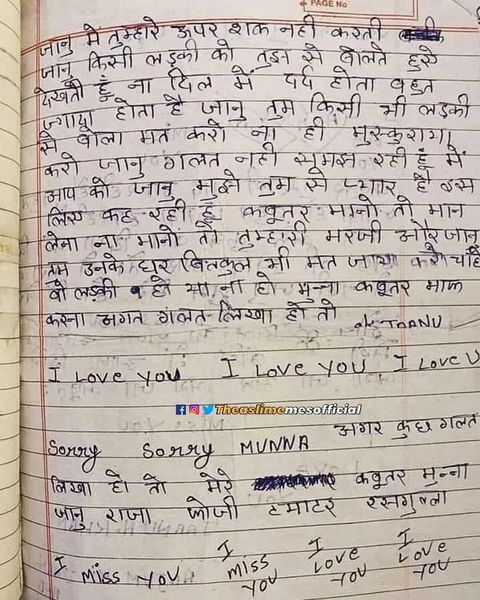 PAGE No
जानु मे तुम्हारे ऊपर शक नही करती
जानु किसी लड़की को तुझ से बोलते हुऐ
देखती हूँ ना दिल में दर्द होता बहुत
ज्यादा होता है जानु तुम किसी भी लड़की
से बोला मत करो ना ही मुस्कुराया
करो जानु गलत नही समझ रही हूँ में
आप को जानु मुझे तुम से प्यार है इस
लिए कह रही हूँ कबूतर मानो तो मान
लेना ना मानों तो तुम्हारी मरजी ओर जानु
तुम उनके घर बिलकुल भी मत जाया करो चाहे
वो लड़की हो या ना हो मुन्ना कबूतर माफ
करना अगत गलत लिखा हो तो
ok JAANU
I LOVE YOU I LOVE YOU I LOVE U
Theaslimememesofficial
Sorry Sorry MUNNA अगर कुछ गलत
लिखा हो तो मेरे कबूतर मुन्ना
जानु राजा फोजी टमाटर रसगुल्ला
I MISS YOU I MISS YOU I LOVE YOU I LOVE YOU